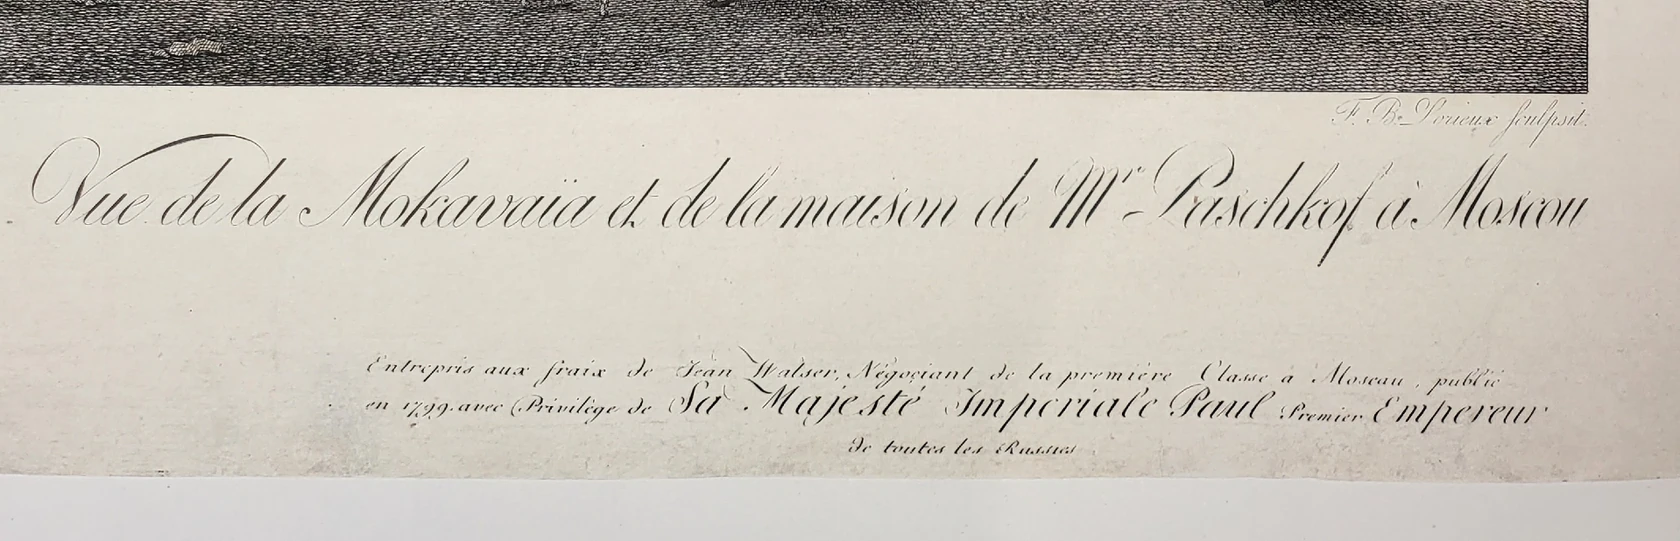 F. B. Lorieux sculpsit.
Vue de la Mokavaïa et de la maison de Mr. Paschkof à Moscou
Entrepris aux fraix de Jean Walser, Négociant de la première Classe a Moscau, publié
en 1799. avec Privilège de Sa Majesté Imperiale Paul Premier Empereur
de toutes les Russies